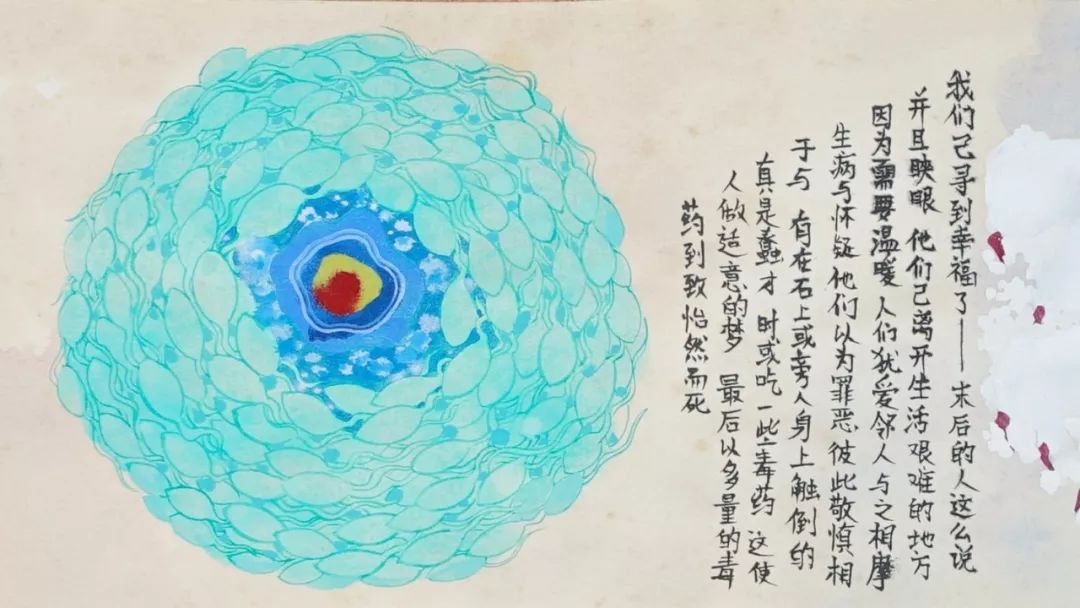 我们己寻到幸福了——末后的人这么说
并且䀹眼 他们己离开生活艰难的地方
因为需要温暖 人们犹爱邻人与之相摩
生病与怀疑他们以为罪恶彼此敬慎相
于与 有在石上或旁人身上触倒的
真是蠢才 时或吃一些毒药 这使
人做适意的梦 最后以多量的毒
药到致怡然而死